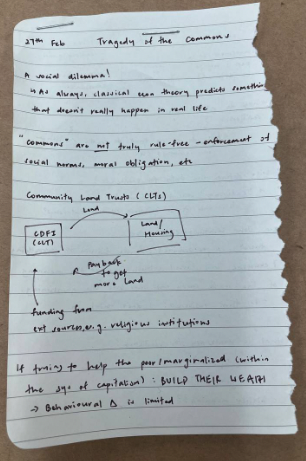 27th Feb Tragedy of the Commons
A social dilemma!
↳ As always, classical econ theory predicts something
that doesn't really happen in real life
"commons" are not truly rule-free - enforcement of
social norms, moral obligation, etc
Community Land Trusts (CLTs)
Land
CDFI
(CLT)
Land/
Housing
Payback
to get
more land
funding from
ext sources, e.g. religious institutions
If trying to help the poor/marginalized (within
the sys of capitalism) : BUILD THEIR WEALTH
→ Behavioural Δ is limited